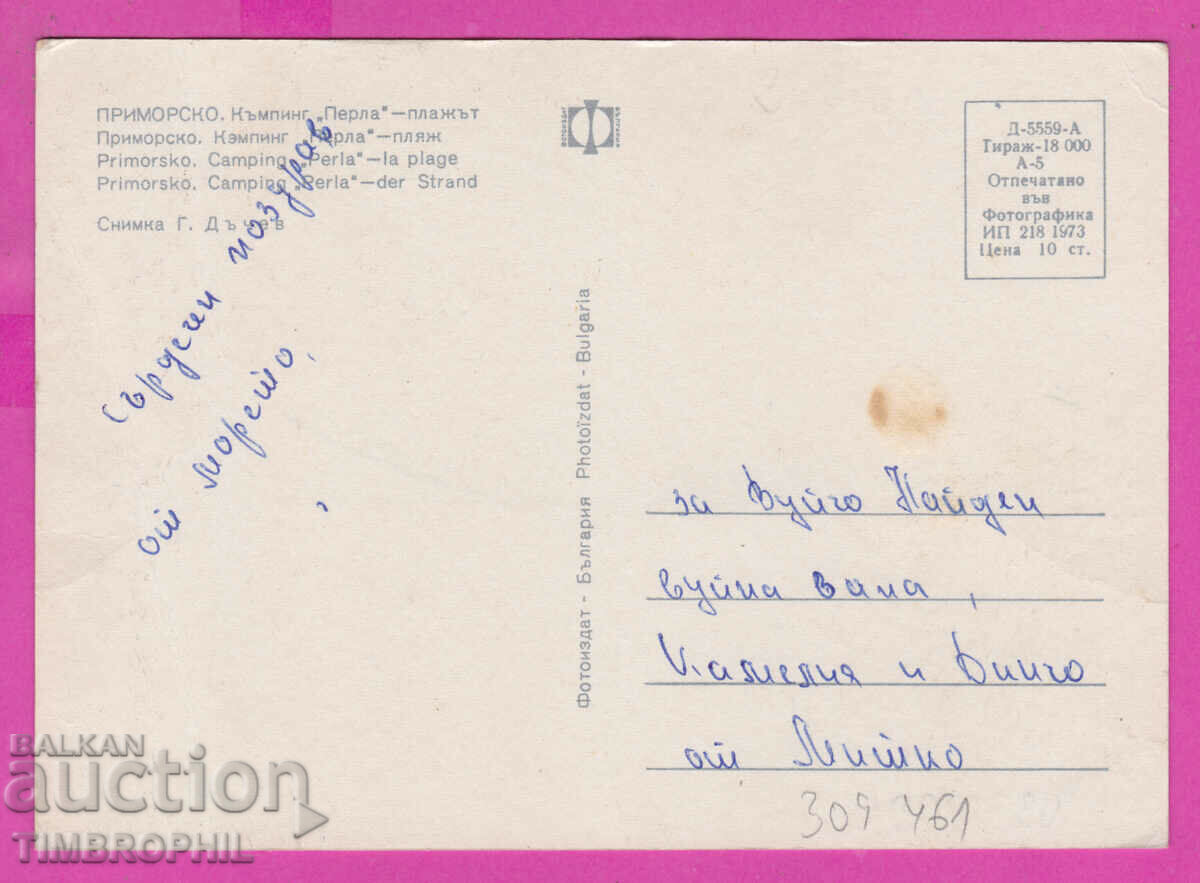 ПРИМОРСКО. Къмпинг „Перла"—плажът
Приморско. Кэмпинг „Перла"—пляж
Primorsko. Camping „Perla"—la plage
Primorsko. Camping „Perla"—der Strand
Снимка Г. Дъчев
Сърдечни поздрав
от морето,
ФОТОИЗДАТ
БЪЛГАРИЯ
Фотоиздат - България Photoïzdat - Bulgaria
Д-5559-А
Тираж-18 000
А-5
Отпечатано
във
Фотографика
ИП 218 1973
Цена 10 ст.
за Вуйчо Найден
вуйна Вана,
Камелия и Винчо
от Митко
309 461
BALKAN
auction
TIMBROPHIL